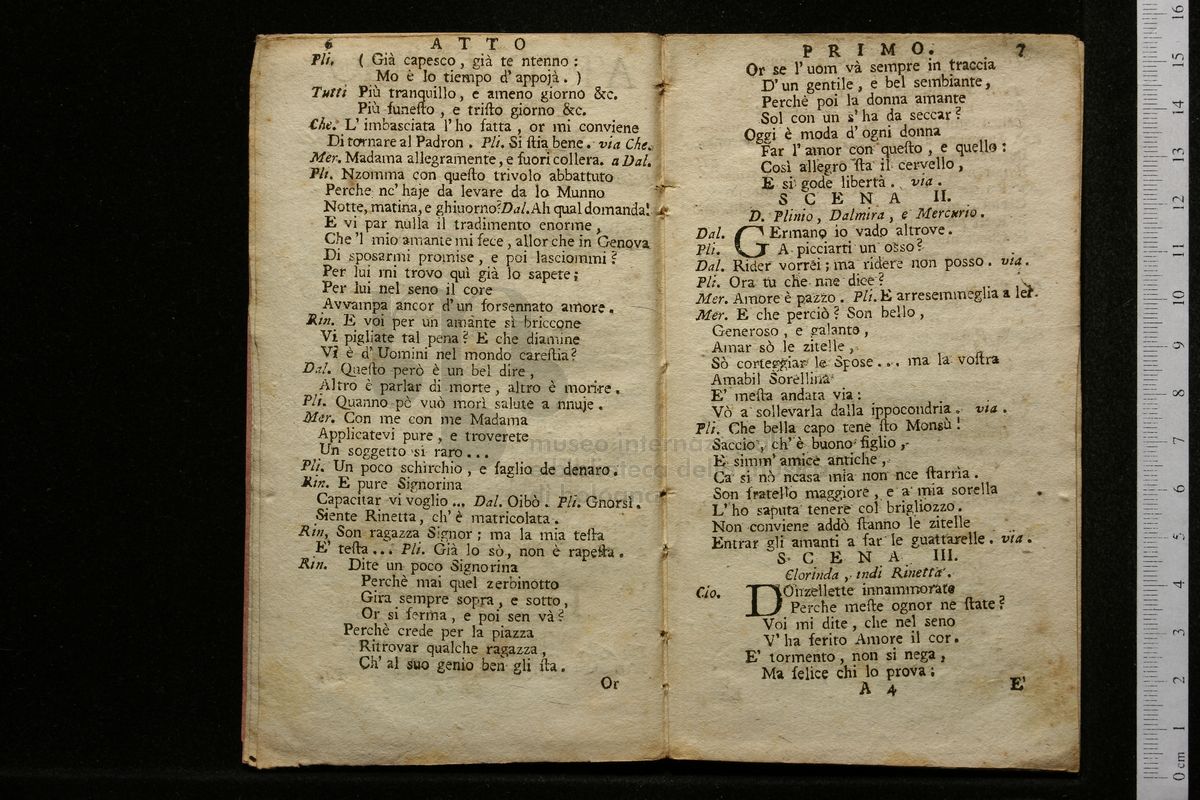 6 ATTO
Pli. ( Già capesco, già te ntenno :
Mo è lo tiempo d'appojà. )
Tutti Più tranquillo, e ameno giorno &c.
Più funeſto, e triſto giorno &c.
Che. L'imbaſciata l'ho fatta, or mi conviene
Di tornare al Padron. Pli. Si ſtia bene. via Che.
Mer. Madama allegramente, e fuori collera. a Dal.
Pli. Nzomma con queſto trivolo abbattuto
Perche nc'haje da levare da lo Munno
Notte, matina, e ghiuorno? Dal. Ah qual domanda!
E vi par nulla il tradimento enorme,
Che 'l mio amante mi fece, allor che in Genova
Di ſposarmi promise, e poi laſciommi?
Per lui mi trovo quì già lo sapete;
Per lui nel seno il core
Avvampa ancor d'un forsennato amore.
Rin. E voi per un amante sì briccone
Vi pigliate tal pena? E che diamine
Vi è d'Uomini nel mondo careſtia?
Dal. Queſto però è un bel dire,
Altro è parlar di morte, altro è morire.
Pli. Quanno pè vuò morì salute a nnuje.
Mer. Con me con me Madama
Applicatevi pure, e troverete
Un soggetto sì raro...
Pli. Un poco schirchio, e faglio de denaro.
Rin. E pure Signorina
Capacitar vi voglio... Dal. Oibò. Pli. Gnorsì.
Siente Rinetta, ch'è matricolata.
Rin, Son ragazza Signor; ma la mia teſta
E' teſta... Pli. Già lo sò, non è rapeſta.
Rin. Dite un poco Signorina
Perchè mai quel zerbinotto
Gira sempre sopra, e sotto,
Or si ferma, e poi sen và?
Perchè crede per la piazza
Ritrovar qualche ragazza,
Ch'al suo genio ben gli ſta.
Or
PRIMO. 7
Or se l'uom và sempre in traccia
D'un gentile, e bel sembiante,
Perchè poi la donna amante
Sol con un s'ha da seccar?
Oggi è moda d'ogni donna
Far l'amor con queſto, e quello:
Così allegro ſta il cervello,
E si gode libertà. via.
SCENA II.
D. Plinio, Dalmira, e Mercurio.
Dal. GErmano io vado altrove.
Pli. A picciarti un osso?
Dal. Rider vorrei; ma ridere non posso. via.
Pli. Ora tu che nne dice?
Mer. Amore è pazzo. Pli. E arresemmeglia a lei.
Mer. E che perciò? Son bello,
Generoso, e galante,
Amar sò le zitelle,
Sò corteggiar le Spose... ma la voſtra
Amabil Sorellina
E' meſta andata via:
Vò a sollevarla dalla ippocondria. via.
Pli. Che bella capo tene ſto Monsù!
Saccio, ch'è buono figlio,
E simm'amice antiche,
Ca si nò ncasa mia non nce ſtarria.
Son fratello maggiore, e a mia sorella
L'ho saputa tenere col brigliozzo.
Non conviene addò ſtanno le zitelle
Entrar gli amanti a far le guattarelle. via.
SCENA III.
Clorinda, indi Rinetta.
Clo. DOnzellette innammorate
Perche meſte ognor ne ſtate?
Voi mi dite, che nel seno
V'ha ferito Amore il cor.
E' tormento, non si nega,
Ma felice chi lo prova;
A 4 E'